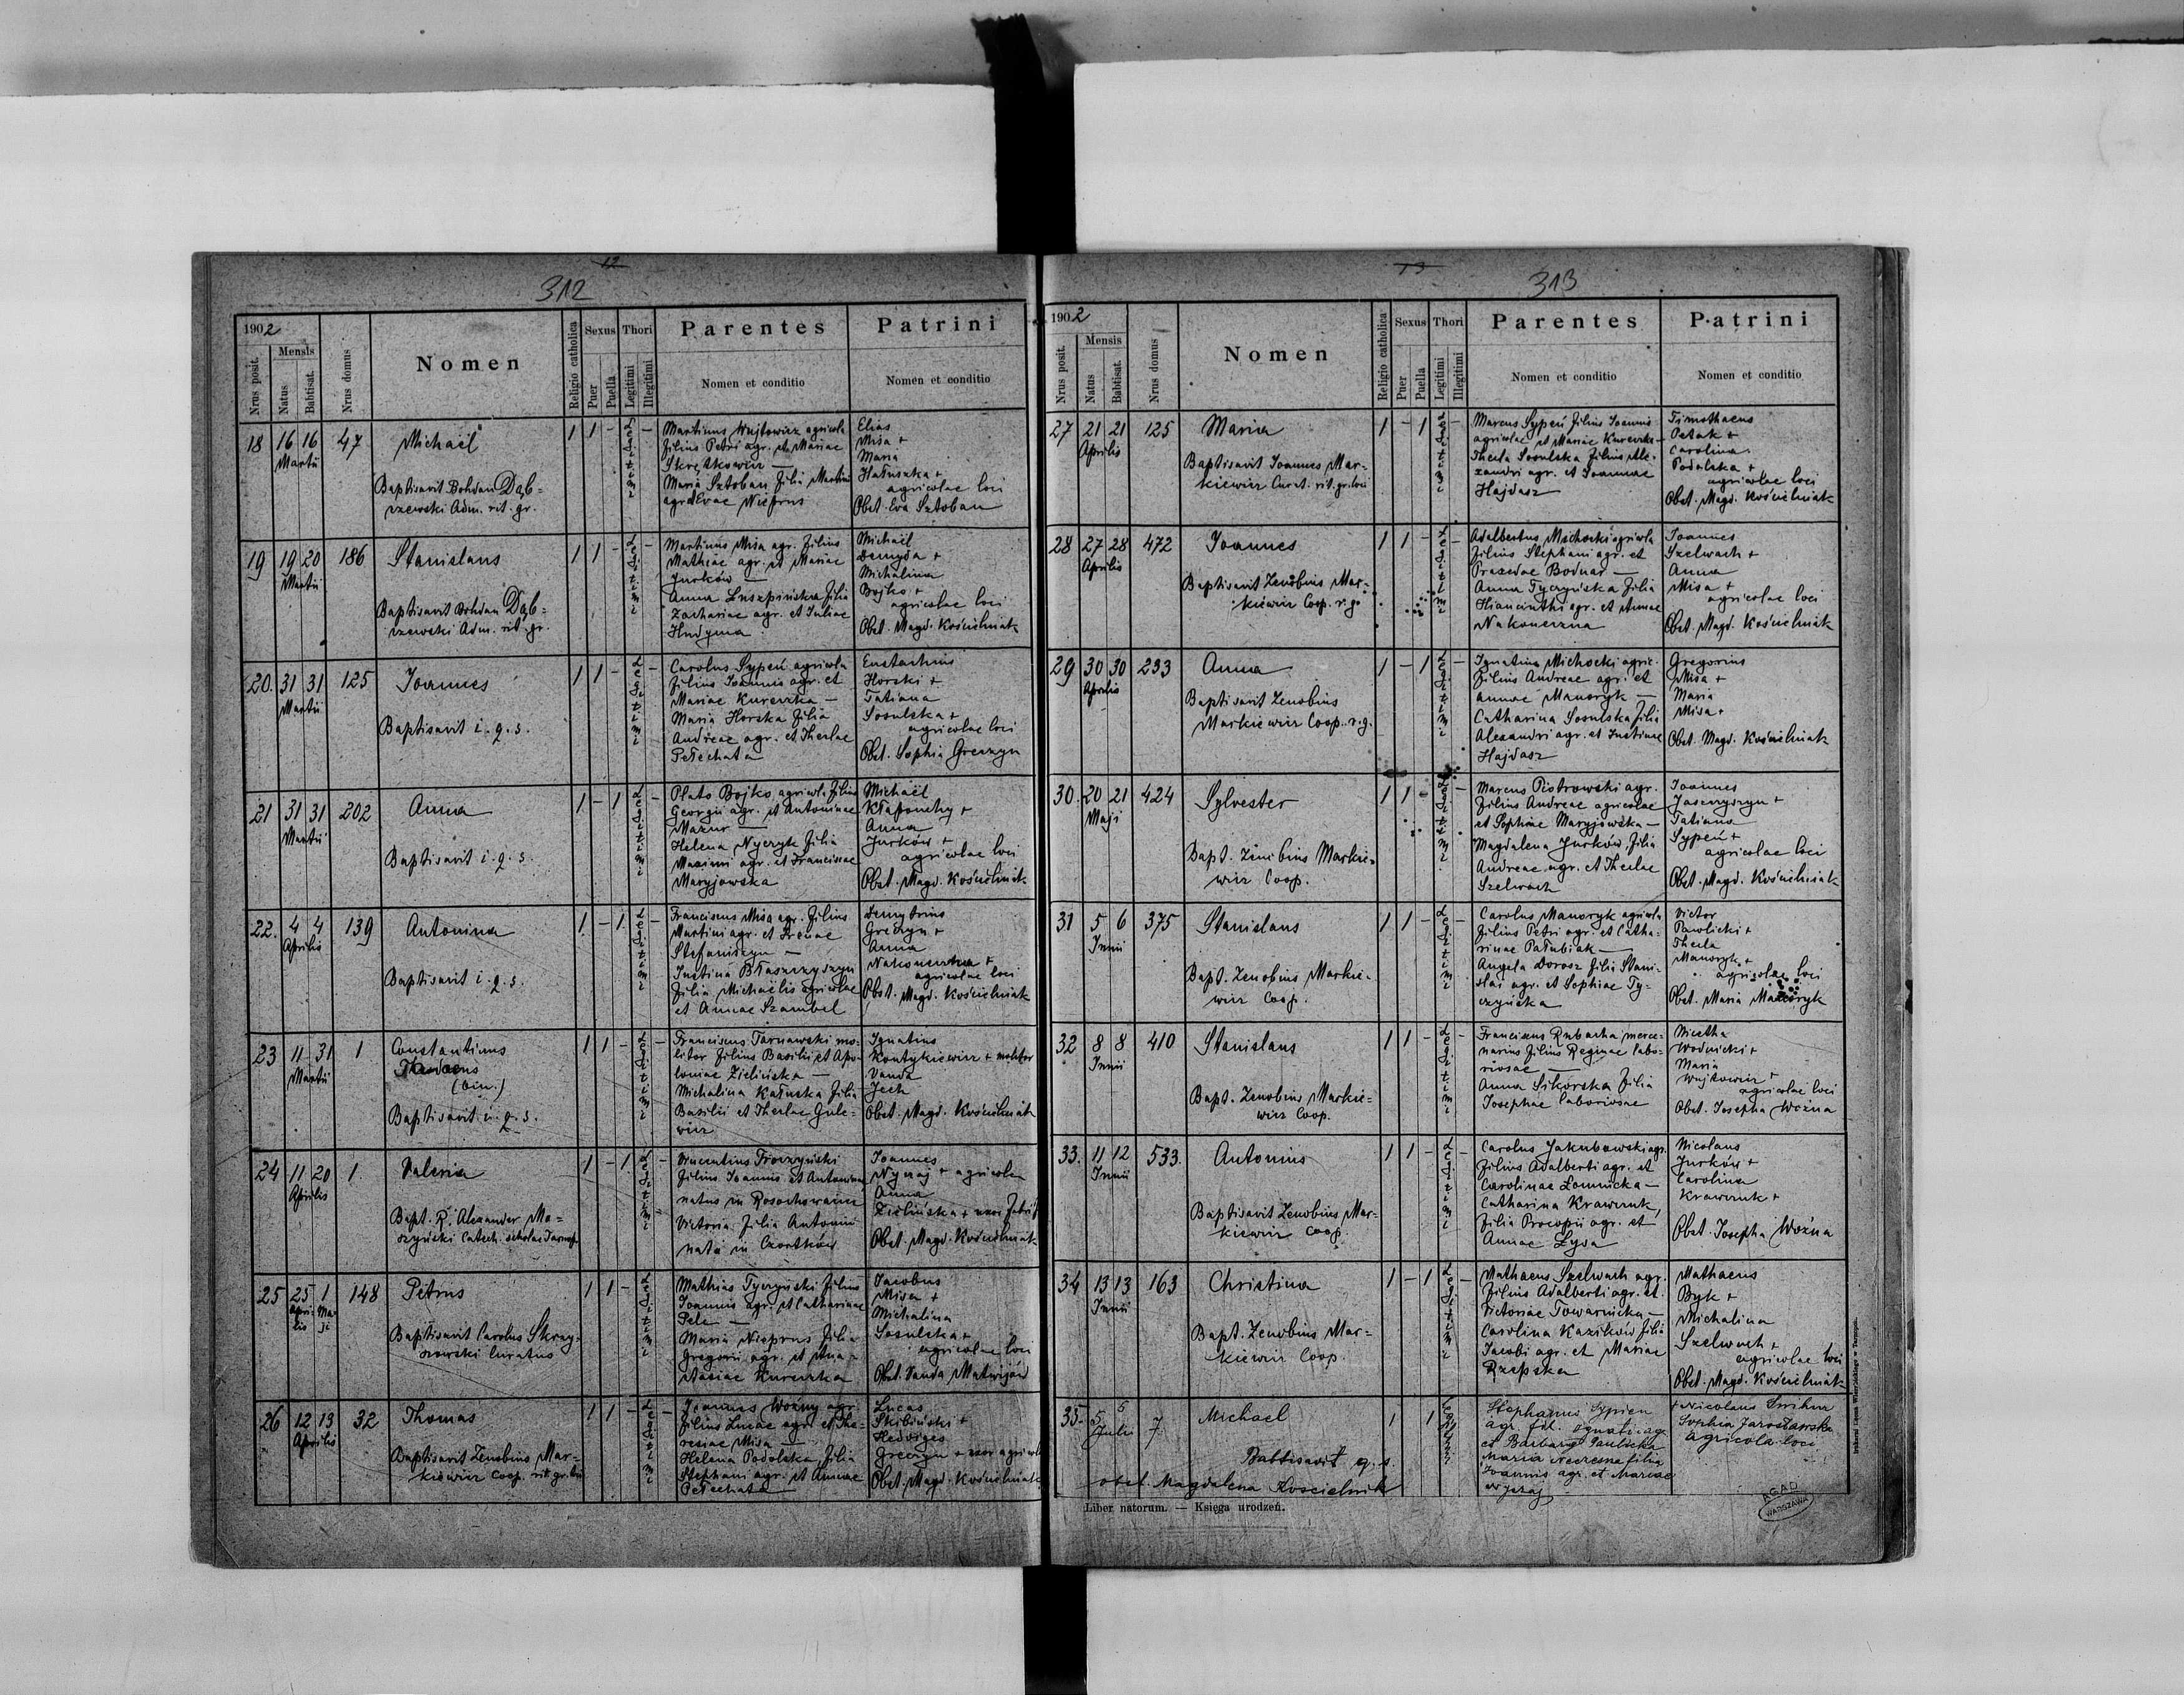 12
312
1902
Nrus posit.
Mensis
Natus
Babtisat.
Nrus domus
Nomen
Religio catholica
Sexus
Puer
Puella
Thori
Legitimi
Illegitimi
Parentes
Nomen et conditio
Patrini
Nomen et conditio
18 16 16 47 Michaël 1 1 - Legitimi -
Martii
Baptisavit Bohdan Dąb=
rzewski Adm. rit. gr.
Martinus Wujtowicz agricola
filius Petri agr. et Mariae
Skrętkowicz —
Maria Sztoban filia Martini
agr. et Evae Nieprus
Elias
Misa +
Maria
Hałuszka +
agricolae loci
Obst. Eva Sztoban
19 19 20 186 Stanislaus 1 1 - Legitimi -
Martii
Baptisavit Bohdan Dąb=
rzewski Adm. rit. gr.
Martinus Misa agr. filius
Mathiae agr. et Mariae
Jurków —
Anna Luszpińska filia
Zachariae agr. et Juliae
Hudyma
Michaël
Demyda +
Michalina
Bojko +
agricolae loci
Obst. Magd. Kościelniak
20. 31 31 125 Ioannes 1 1 - Legitimi -
Martii
Baptisavit i. q. s.
Carolus Sypeń agricola
filius Ioannis agr. et
Mariae Kureczka —
Maria Horska filia
Andreae agr. et Theclae
Pełechata
Eustachius
Horski +
Tatiana
Sosulska +
agricolae loci
Obst. Sophia Greczyn
21 31 31 202 Anna 1 - 1 Legitimi -
Martii
Baptisavit i. q. s.
Plato Bojko agricola filius
Georgii agr. et Antoninae
Mazur —
Helena Nyczyk filia
Maximi agr. et Franciscae
Maryjowska
Michaël
Kłapouchy +
Anna
Jurków +
agricolae loci
Obst. Magd. Kościelniak
22. 4 4 139 Antonina 1 - 1 Legitimi -
Aprilis
Baptisavit i. q. s.
Franciscus Misa agr. filius
Martini agr. et Irenae
Stefaniszyn —
Iustina Błaszczyszyn
filia Michaëlis agricolae
et Annae Szambel
Demytrius
Greczyn +
Anna
Nakoneczna +
agricolae loci
Obst. Magd. Kościelniak
23 11 31 1 Constantinus 1 1 - Legitimi -
Martii
Thadaeus
(bin.)
Baptisavit i. q. s.
Franciscus Tarnawski mo=
litor filius Basilii et Apo=
loniae Zielińska —
Michalina Kałuska filia
Basilii et Theclae Gule=
wicz
Ignatius
Kontykiewicz + molitor
Vanda
Jech
Obst. Magd. Kościelniak
24 11 20 1. Valeria 1 - 1 Legitimi
Aprilis
Bapt. R. Alexander Mo=
szyński Catech. scholae Tarnop.
Vincentius Troczyński
filius Ioannis et Antoninae
natus in Rosochowaciec
Victoria filia Antonii
nata in Czortków
Ioannes
Nyczaj + agricola
Anna
Zielińska + uxor fabri
Obst. Magd. Kościelniak
25 25 1 148 Petrus 1 1 - Legitimi
Apri=
lis
Ma=
ji
Baptisavit Carolus Skrzy=
szowski Curatus
Mathias Tyczyński filius
Ioannis agr. et Catharinae
Pele —
Maria Nieprus filia
Gregorii agr. et Ana=
stasiae Kureczka
Iacobus
Misa +
Michalina
Sosulska +
agricolae loci
Obst. Vanda Matwijów
26 12 13 32 Thomas 1 1 - Legitimi -
Aprilis
Baptisavit Zenobius Mar=
kiewicz Coop. rit. gr. loci
Ioannes Woźny agr.
filius Lucae agr. et The=
resiae Misa —
Helena Podolska filia
Stephani agr. et Annae
Pełechata
Lucas
Skibiński +
Hedviges
Greczyn + uxor agricolae
Obst. Magd. Kościelniak
13
313
1902
Nrus posit.
Mensis
Natus
Babtisat.
Nrus domus
Nomen
Religio catholica
Sexus
Puer
Puella
Thori
Legitimi
Illegitimi
Parentes
Nomen et conditio
Patrini
Nomen et conditio
27 21 21 125 Maria 1 - 1 Legitimi -
Aprilis
Baptisavit Ioannes Mar=
kiewicz Curat. rit. gr. loci
Marcus Sypeń filius Ioannis
agricolae et Mariae Kureczka —
Thecla Sosulska filius Ale=
xandri agr. et Ioannae
Hajdasz
Timothaeus
Petak +
Carolina
Podolska +
agricolae loci
Obst. Magd. Kościelniak
28 27 28 472 Ioannes 1 1 - Legitimi -
Aprilis
Baptisavit Zenobius Mar=
kiewicz Coop. r. g.
Adalbertus Michocki agricola
filius Stephani agr. et
Praxedae Bodnar —
Anna Tyczyńska filia
Hiacinthi agr. et Annae
Nakoneczna
Ioannes
Szelwach +
Anna
Misa +
agricolae loci
Obst. Magd. Kościelniak
29 30 30 233 Anna 1 - 1 Legitimi -
Aprilis
Baptisavit Zenobius
Markiewicz Coop. r. g.
Ignatius Michocki agric.
filius Andreae agr. et
Annae Manoryk —
Catharina Sosulska filia
Alexandri agr. et Iustinae
Hajdasz
Gregorius
Misa +
Maria
Misa +
Obst. Magd. Kościelniak
30. 20 21 424 Sylvester 1 1 - Legitimi -
Maji
Bapt. Zenobius Markie=
wicz Coop.
Marcus Piotrowski agr.
filius Andreae agricolae
et Sophiae Maryjowska —
Magdalena Jurków filia
Andreae agr. et Theclae
Szelwach
Ioannes
Jaseczyszyn +
Tatiana
Sypeń +
agricolae loci
Obst. Magd. Kościelniak
31 5 6 375 Stanislaus 1 1 - Legitimi -
Iunii
Bapt. Zenobius Markie=
wicz Coop.
Carolus Manoryk agricola
filius Petri agr. et Catha=
rinae Pałubiak —
Angela Dorosz filia Stani=
slai agr. et Sophiae Ty=
czyńska
Victor
Pawlicki +
Thecla
Manoryk +
agricolae loci
Obst. Maria Manoryk
32 8 8 410 Stanislaus 1 1 - Legitimi -
Iunii
Bapt. Zenobius Markie=
wicz Coop.
Franciscus Rybacha merce=
narius filius Reginae labo=
riosae —
Anna Sikorska filia
Josephae laboriosae
Nicetha
Wodnicki +
Maria
Wujtowicz +
agricolae loci
Obst. Josepha Woźna
33. 11 12 533. Antonius 1 1 - Legitimi -
Iunii
Baptisavit Zenobius Mar=
kiewicz Coop.
Carolus Jakubowski agr.
filius Adalberti agr. et
Carolinae Łomnicka —
Catharina Krawczuk,
filia Procopii agr. et
Annae Łysa
Nicolaus
Jurków +
Carolina
Krawczuk +
Obst. Josepha Woźna
34 13 13 163 Christina 1 - 1 Legitimi -
Iunii
Bapt. Zenobius Mar=
kiewicz Coop.
Mathaeus Szelwach agr.
filius Adalberti agr. et
Victoriae Towarnicka —
Carolina Kazików filia
Iacobi agr. et Mariae
Rzepska
Mathaeus
Byk +
Michalina
Szelwach +
agricolae loci
Obst. Magd. Kościelniak
35. 5 6 7 Michael 1 1
Julii
Babtisavit q. s.
obst. Magdalena Kościelnik
Stephanus Sypien
agr. fil. Ignati agr.
et Barbarae Paulicka
Maria Neczesna filia
Ioannis agr. et Mariae
Nyczaj
+ Nicolaus
Sophia Jarosławska
agricola loci
Liber natorum. — Księga urodzeń.
AGAD
WARSZAWA